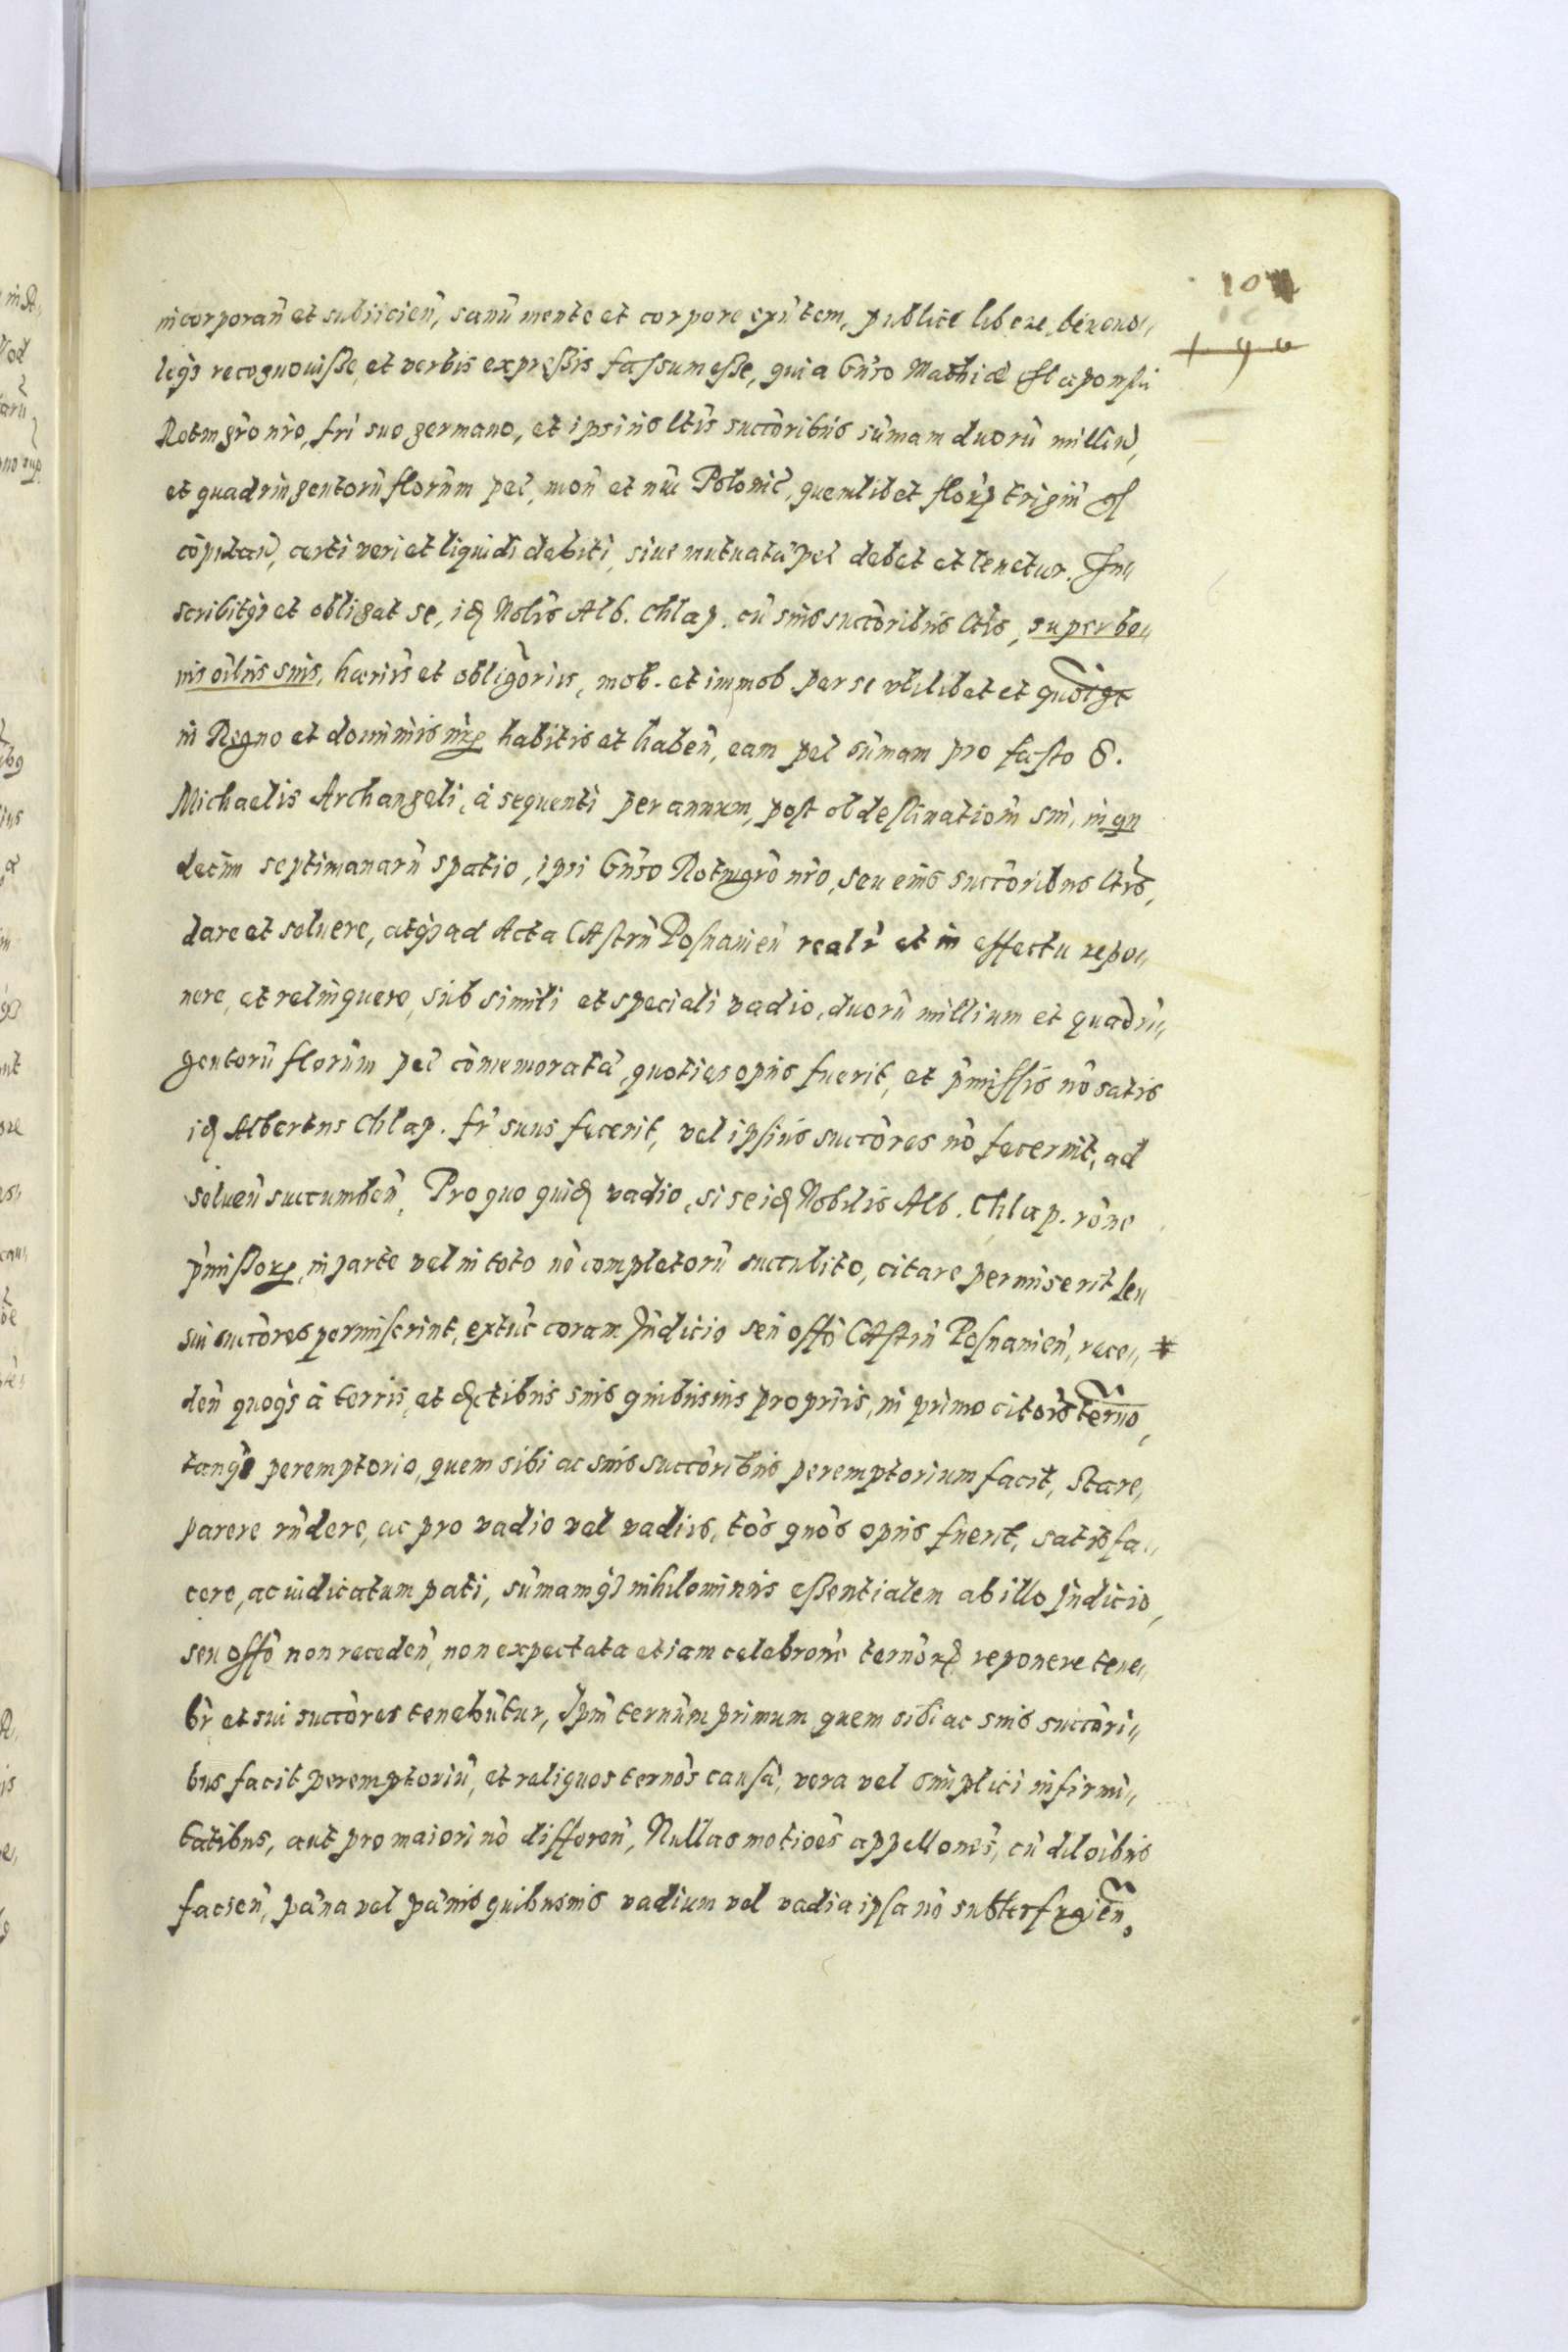 104
190
incorporan̄ et subiicien̄, sanū mente et corpore exn̄tem, publice libere, beneuo„
leqз recognouiße, et verbis expreßis fassum eße, quia Gn̄so Mathiæ Chlaponski
Rotmgr̄o nr̄o, fr̄i suo germano, et ipsius lt̄is succōribus sum̄am duorū milliū,
et quadringentorū florn̄m pec̄, mon̄ et nūi Polonic̄, quemlibet flor̄ꝝ trigin̄ gſ
cōputan̄, certi veri et liquidi debiti, siue mutuatæ pec̄ debet et tenetur. In„
scribitqз et obligat se, idꝫ Nob̄is Alb. Chlap. cū suis succōribus lt̄is, super bo„
nis oīb̄us suis, hærijs et obligōrijs, mob. et immob. per se vbilibet et quōctꝫ
in Regno et dominijs nr̄ꝝ habitis et haben̄, eam pec̄ sum̄am pro festo S.
Michaelis Archangeli, à sequenti per annum, post obdestination̄ sui, in qn̄
decim septimanarū spatio, ipsi Gn̄so Rotmgr̄o nr̄o, seu eius succōribus lt̄is,
dare et soluere, atqз ad Acta Castrn̄ Posnanien̄ realr̄ et in effectu repo„
nere, et relinquere, sub simili et speciali vadio, duorū millium et quadrin„
gentorū florn̄m pec̄ com̄emoratæ, quoties opus fuerit, et p̄missis nō satis
idꝫ Albertus Chlap. fr̄ suus fecerit, vel ipsius succōres nō fecerint, ad
soluen̄ succumben̄. Pro quo quidꝫ vadio, si se idꝫ Nobilis Alb. Chlap. rōne
p̄mißoꝝ, in parte vel in toto nō completorū succubito, citare permiserit seu
sui succōres permiserint, extūc coram Iudicio seu off̄o Castrn̄ Posnanien̄, rece„ *
den̄ quoqз à terris, et dꝫctibus suis quibusuis proprijs, in primo citōrs tern̄o,
tanqз peremptorio, quem sibi ac suis succōribus peremptorium facit, stare,
parere rn̄dere, ac pro vadio vel vadijs, tōs quōs opus fuerit, satisfa„
cere, ac iudicatum pati, sum̄amqз nihilominus eßentialem ab illo Iudicio,
seu off̄o non receden̄, non expectata etiam celebron̄e tern̄oꝝ reponere tene„
br̄ et sui succōres tenebūtur, Ipm̄ tern̄um primum quem sibi ac suis succōri„
bus facit peremptoriū, et reliquos tern̄os causa, vera vel simplici infirmi„
tatibus, aut pro maiori nō differen̄, Nullas motiōes appellon̄es, cū diloībus
facien̄, pœna vel pœnis quibusuis vadium vel vadia ipsa nō subterfugien̄.